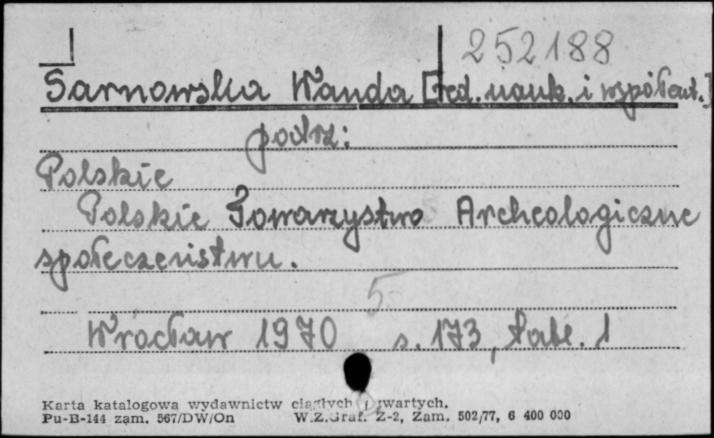 252188
Sarnowska Wanda [red. nauk. i współaut.]
podrz:
Polskie
Polskie Towarzystwo Archeologiczne
społeczeństwu.
5
Wrocław 1970 s. 173, tabl. 1
Karta katalogowa wydawnictw ciągłych i zwartych.
Pu-B-144 zam. 567/DW/On W.Z.Graf. Z-2, Zam. 502/77, 6 400 000